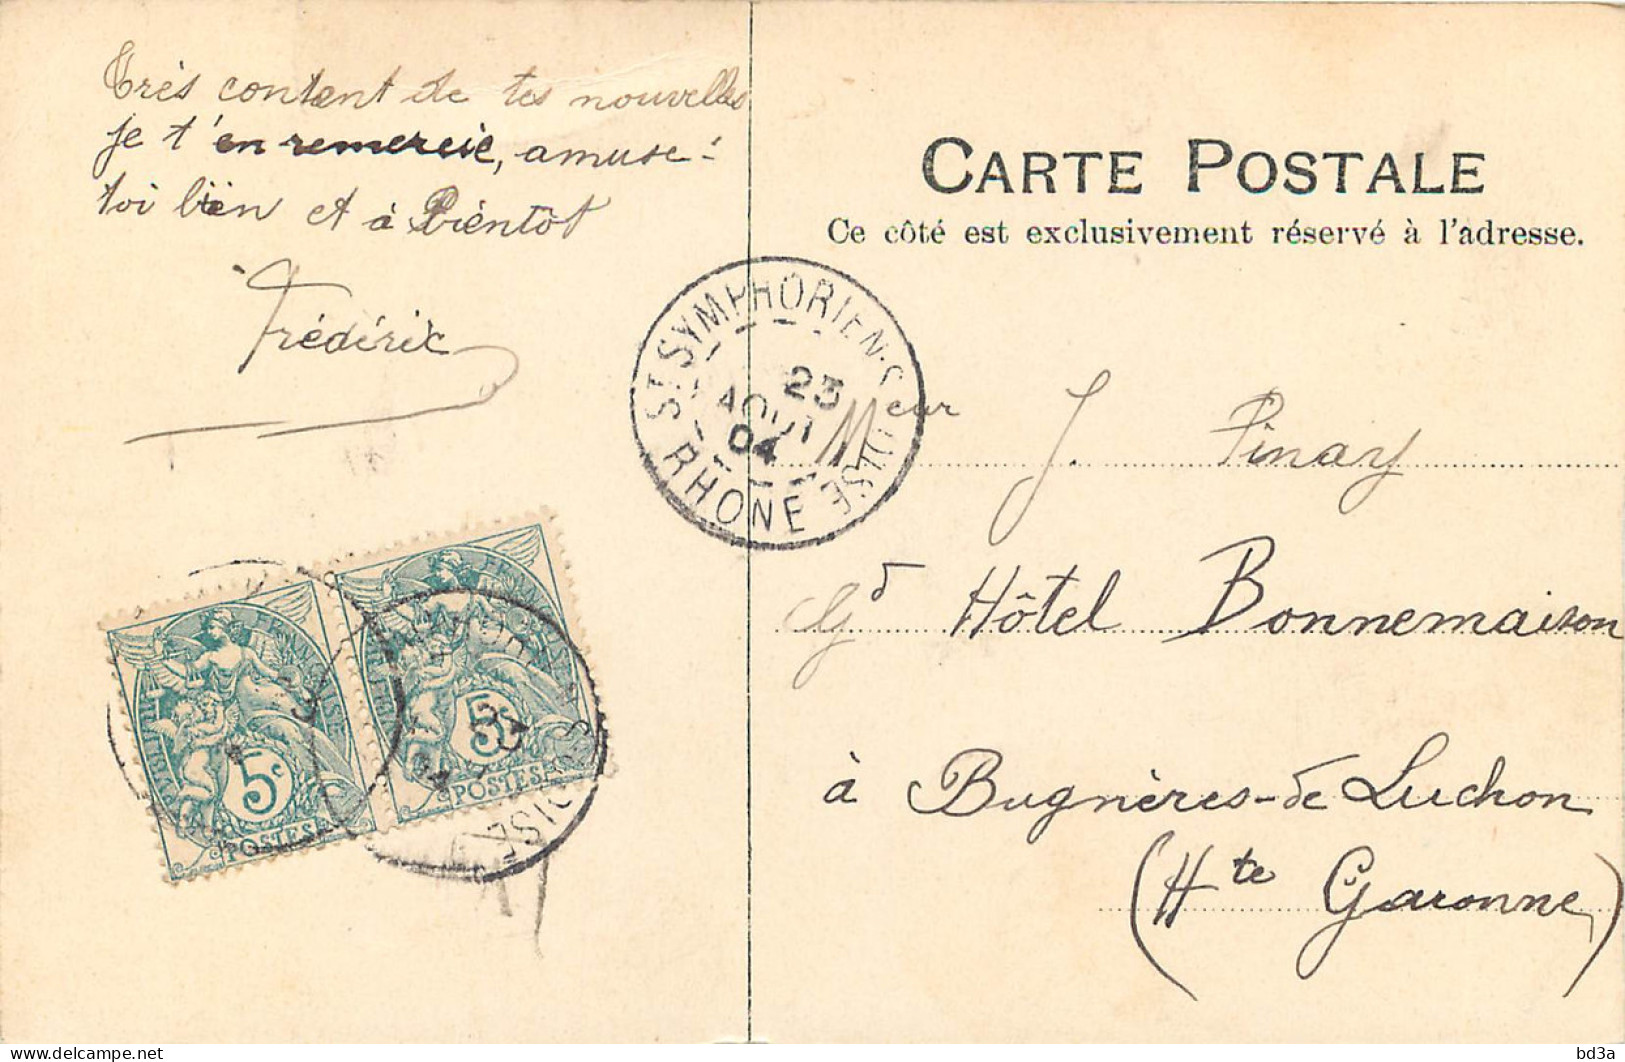 Très content de tes nouvelles
je t'en remercie, amuse-
toi bien et à Bientôt
Frédéric
CARTE POSTALE
Ce côté est exclusivement réservé à l'adresse.
ST SYMPHORIEN-S-COISE
23
AOUT
04
RHONE
Meur J. Pinay
Gd Hôtel Bonnemaison
à Bagnères-de Luchon
(Hte Garonne)
REPUBLIQUE FRANÇAISE
5c
POSTES
REPUBLIQUE FRANÇAISE
5c
POSTES
delcampe.net
bd3a